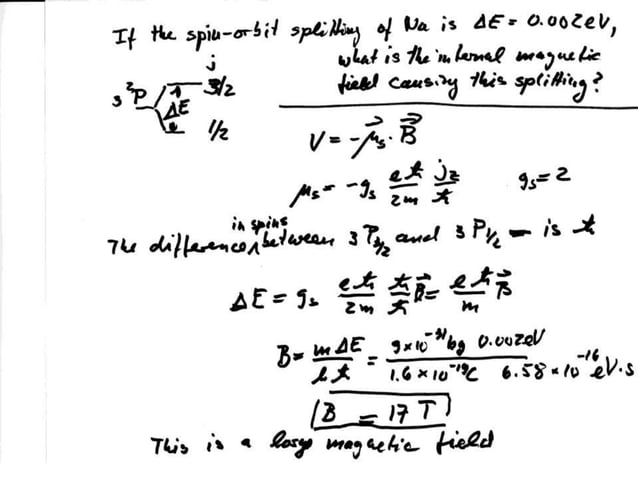 If the spin-orbit splitting of Na is ΔE = 0.002eV,
what is the internal magnetic
field causing this splitting?
j
3²P 3/2
ΔE
1/2
V = -μ⃗s · B⃗
μs = -gs eħ/2m jz/ħ gs = 2
in spins
The difference between 3 P3/2 and 3 P1/2 – is ħ
ΔE = gs eħ/2m ħ/ħ B⃗ = eħ/m B⃗
B = mΔE/eħ = 9×10⁻³¹kg 0.002eV / 1.6×10⁻¹⁹C 6.58×10⁻¹⁶eV·s
B = 17 T
This is a large magnetic field